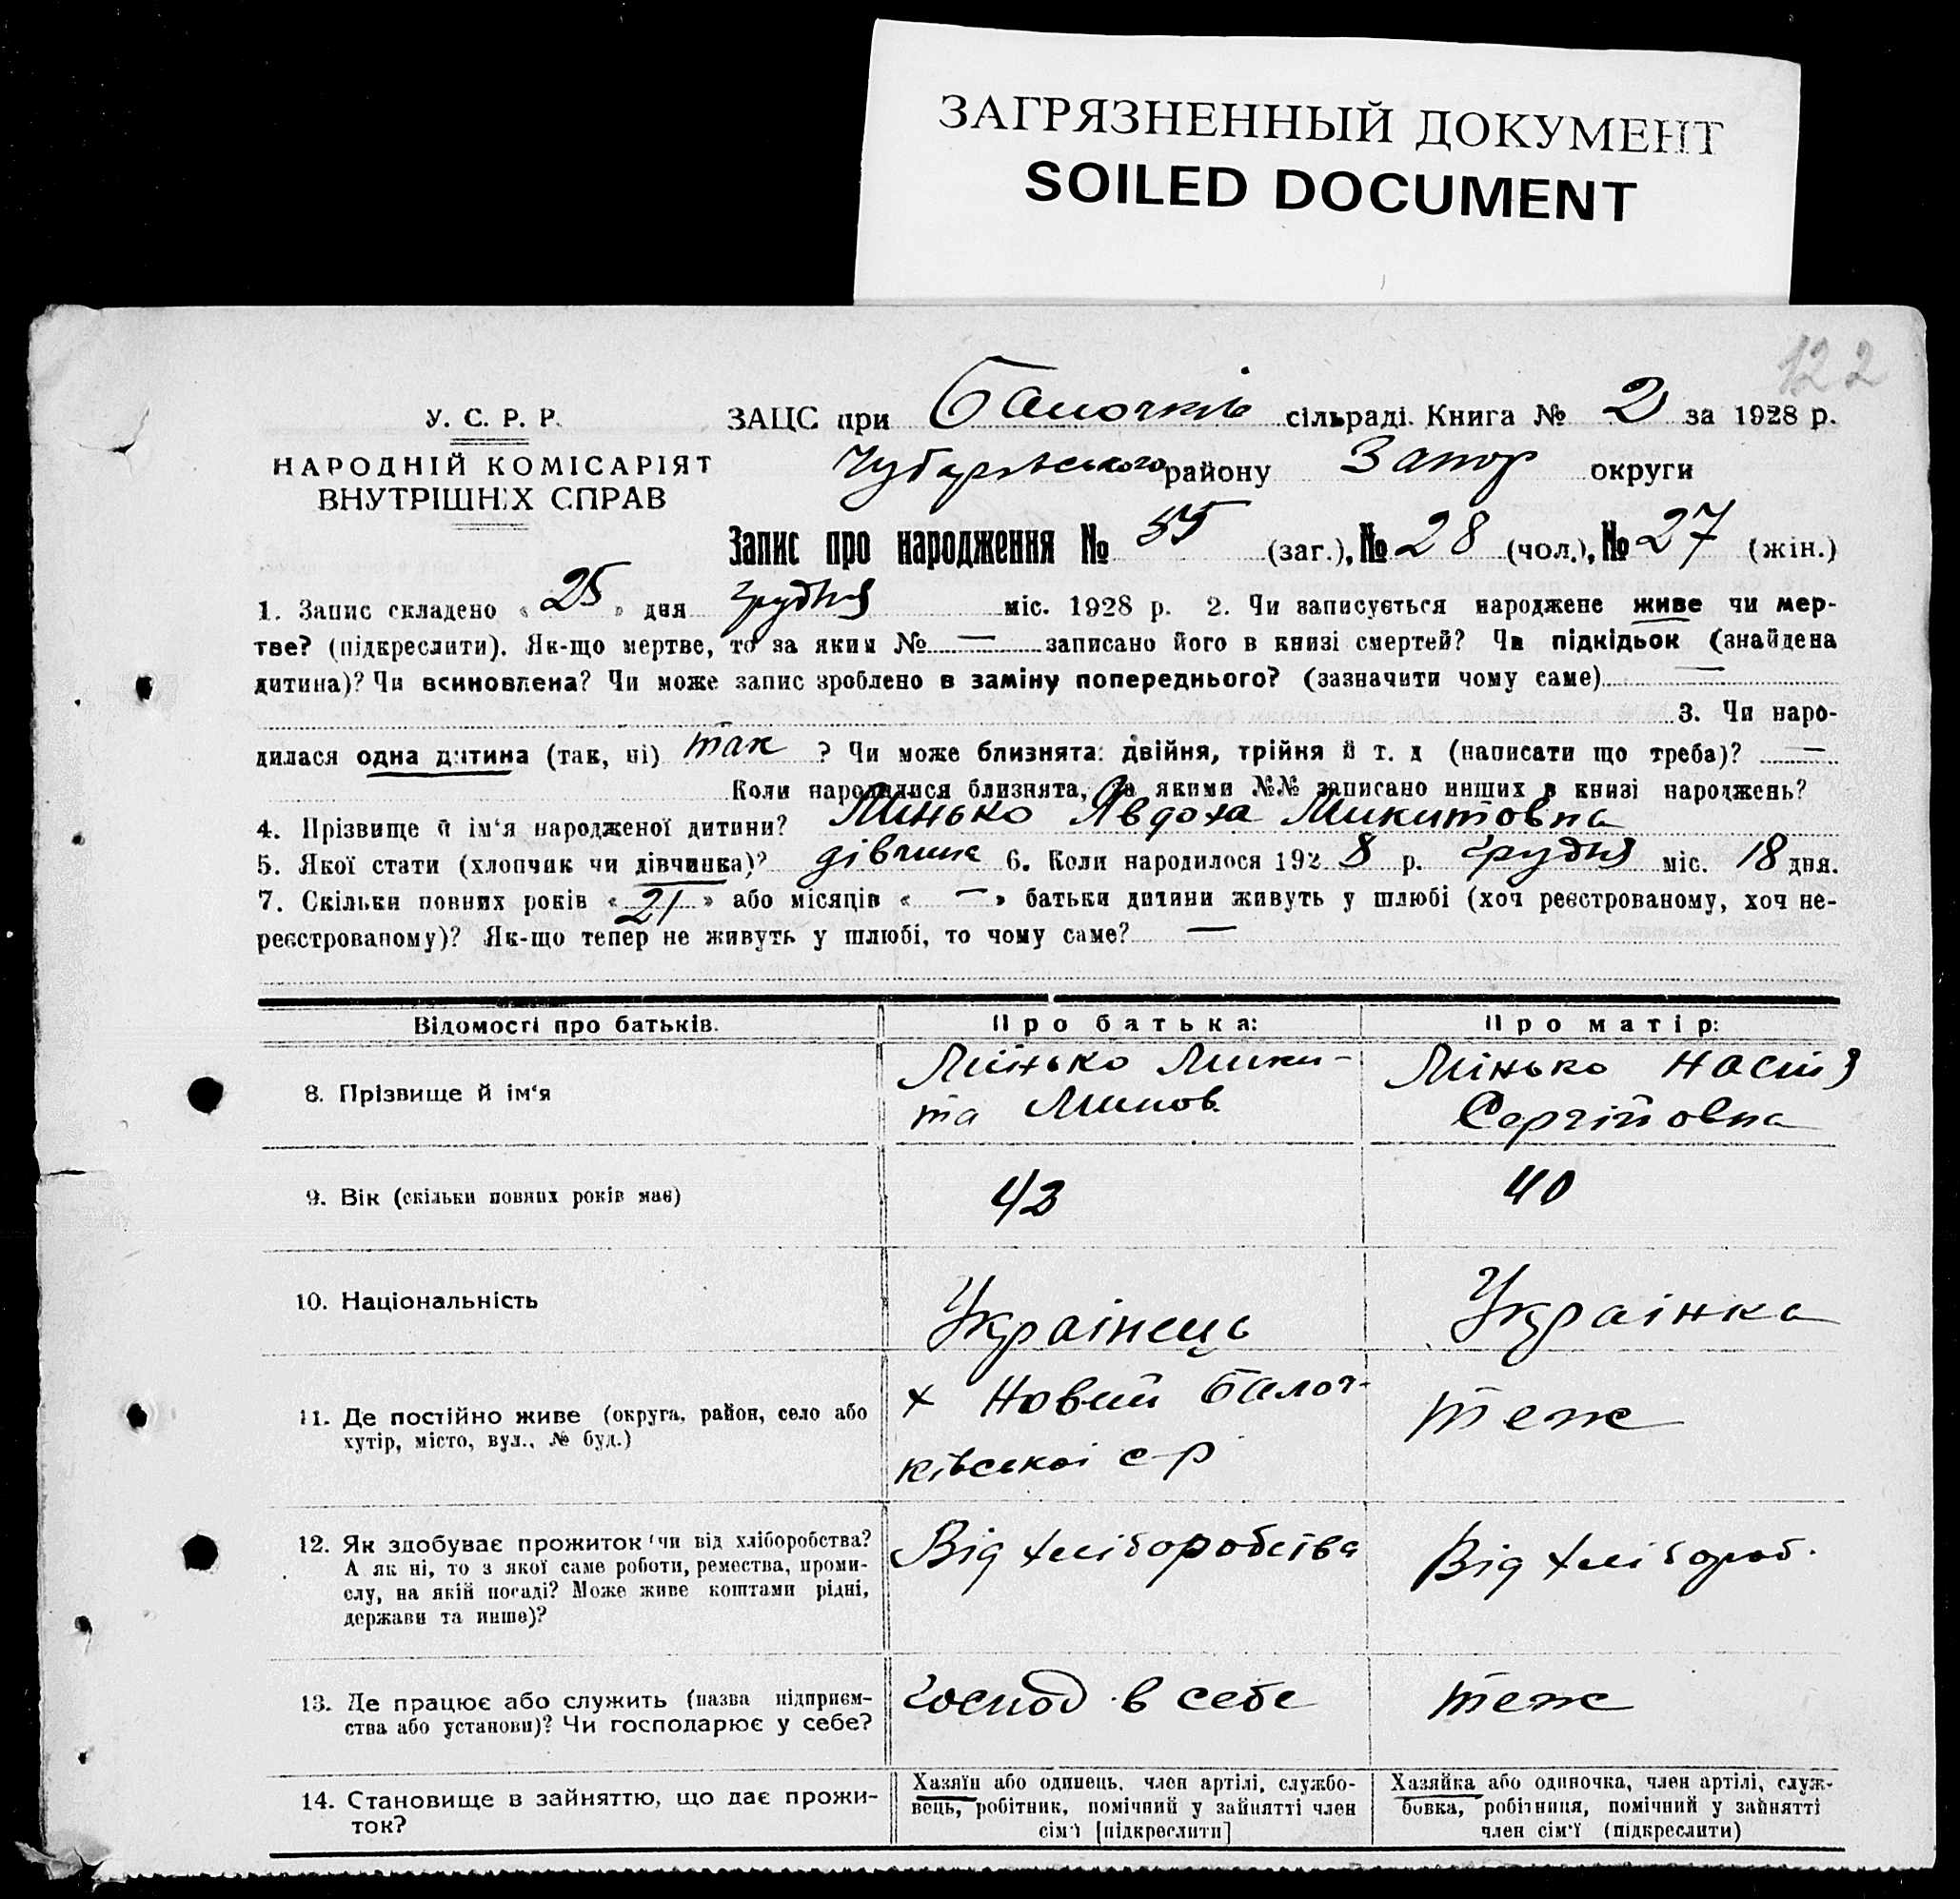 ЗАГРЯЗНЕННЫЙ ДОКУМЕНТ
SOILED DOCUMENT
122
У. С. Р. Р.
НАРОДНІЙ КОМІСАРІЯТ
ВНУТРІШНІХ СПРАВ
ЗАЦС при Балочків сільраді. Книга № 2 за 1928 р.
Чубарівського району Запор округи
Запис про народження № 55 (заг.), № 28 (чол.), № 27 (жін.)
1. Запис складено « 25 » дня грудня міс. 1928 р. 2. Чи записується народжене живе чи мер-
тве? (підкреслити). Як-що мертве, то за яким № — записано його в книзі смертей? Чи підкідьок (знайдена
дитина)? Чи всиновлена? Чи може запис зроблено в заміну попереднього? (зазначити чому саме) —
3. Чи наро-
дилася одна дитина (так, ні) так ? Чи може близнята: двійня, трійня й т. д (написати що треба)? —
Коли народилися близнята, за якими №№ записано инших в книзі народжень?
4. Прізвище й ім‘я народженої дитини? Мінько Явдоха Микитовна
5. Якої стати (хлопчик чи дівчинка)? дівчинк 6. Коли народилося 192 8 р. грудня міс. 18 дня.
7. Скільки повних років « 21 » або місяців « — » батьки дитини живуть у шлюбі (хоч реєстрованому, хоч не-
реєстрованому)? Як-що тепер не живуть у шлюбі, то чому саме? —
Відомості про батьків. Про батька: Про матір:
8. Прізвище й ім‘я Мінько Мики- Мінько Настя
та Сергійовна
9. Вік (скільки повних років має) 43 40
10. Національність Украінець Украінка
11. Де постійно живе (округа, район, село або х Новий Балоч- теж
хутір, місто, вул., № буд.) ківськоі с-р
12. Як здобуває прожиток (чи від хліборобства? Від хліборобства Від хлібороб.
А як ні, то з якої саме роботи, ремества, проми-
слу, на якій посаді? Може живе коштами рідні,
держави та инше)?
13. Де працює або служить (назва підприєм- господ в себе теж
ства або установи)? Чи господарює у себе?
14. Становище в зайняттю, що дає прожи-
ток?
Хазяїн або одинець, член артілі, службо-
вець, робітник, помічний у зайнятті член
сім‘ї [підкреслити]
Хазяйка або одиночка, член артілі, служ-
бовка, робітниця, помічний у зайнятті
член сім‘ї (підкреслити)